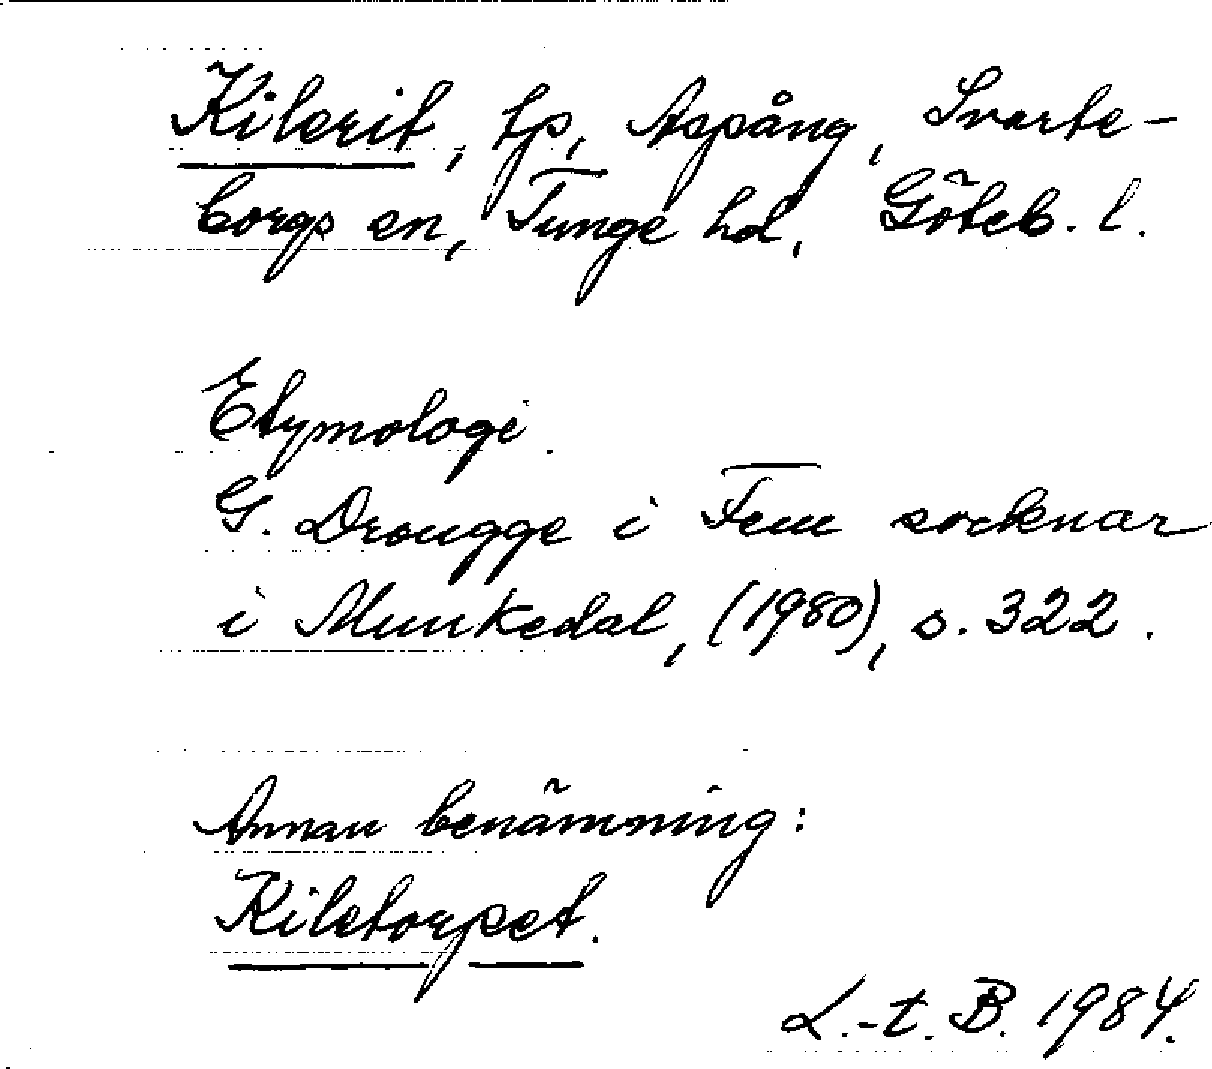 Kilerit, tp, Aspång, Svarte-
borgs sn, Tunge hd, Göteb. l.
Etymologi.
G. Drougge i Fem socknar
i Munkedal, (1980), s. 322.
Annan benämning:
Kiletorpet.
L.-t. B. 1984.